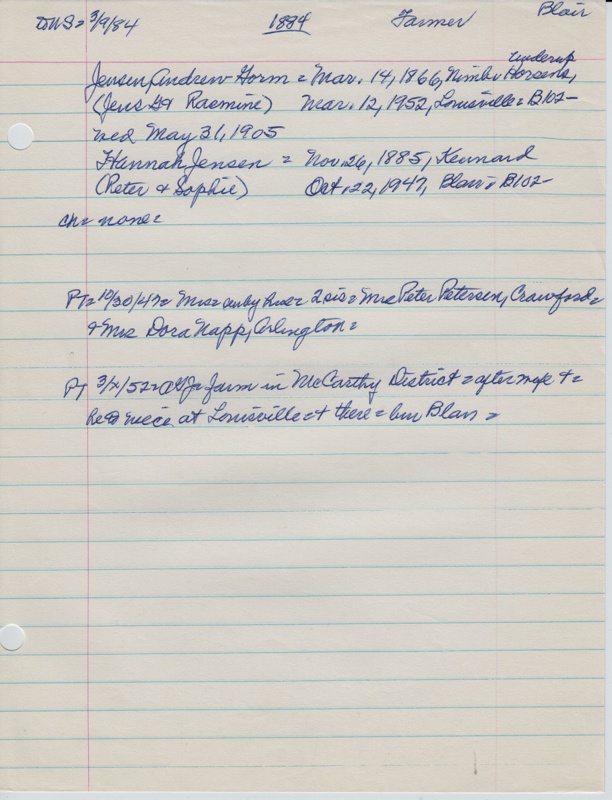 DWS = 3/9/84 1884 Farmer Blair
Jensen, Andrew Gorm = Mar. 14, 1866, Horsens,
(Jens & Rasmine) Mar. 12, 1952, Louisville = B102-
wed May 31, 1905
Hannah Jensen = Nov. 26, 1885, Kennard
(Peter & Sophie) Oct. 22, 1947, Blair = B102-
ch = none =
PT = 10/30/47 = Mrs = 2 sis = Mrs Peter Petersen, Crawford =
& Mrs Dora Napp, Arlington =
PT 3/ /52 = farm in McCarthy District = after + =
niece at Louisville + there = bur Blair =